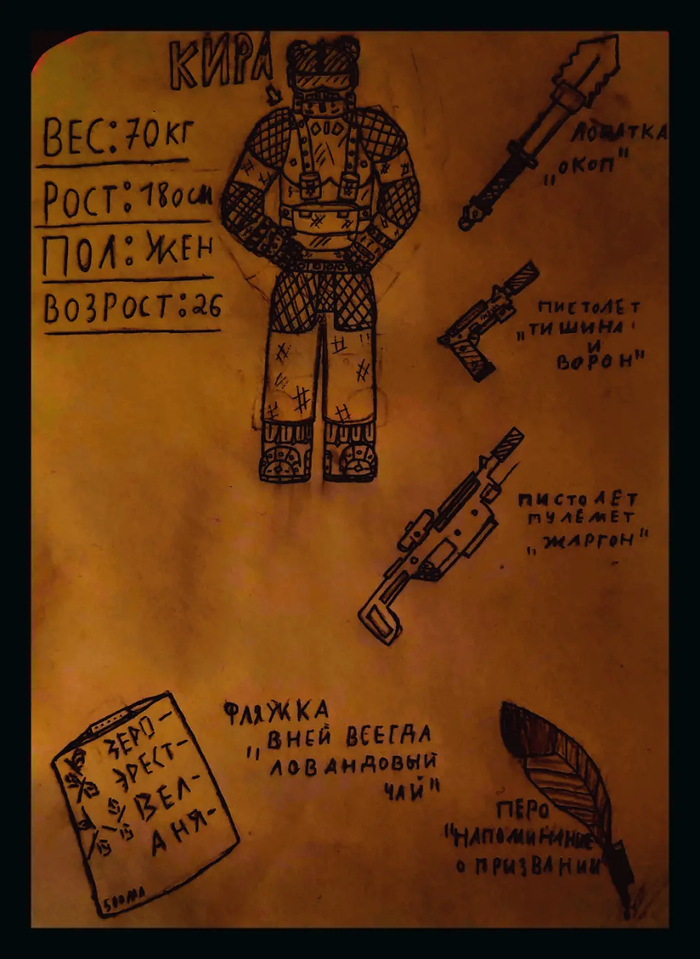 КИРА
ВЕС: 70 КГ
РОСТ: 180 СМ
ПОЛ: ЖЕН
ВОЗРОСТ: 26
ЛОПАТКА
„ОКОП"
ПИСТОЛЕТ
„ТИШИНА
И
ВОРОН"
ПИСТОЛЕТ
ПУЛЁМЕТ
„ЖАРГОН"
ФЛЯЖКА
„ВНЕЙ ВСЕГДА
ЛОВАНДОВЫЙ
ЧАЙ"
ЗЕРО-
ЭРЕСТ-
ВЕЛ-
АНЯ-
500МЛ
ПЕРО
"НАПОМИНАНИЕ
О ПРИЗВАНИИ